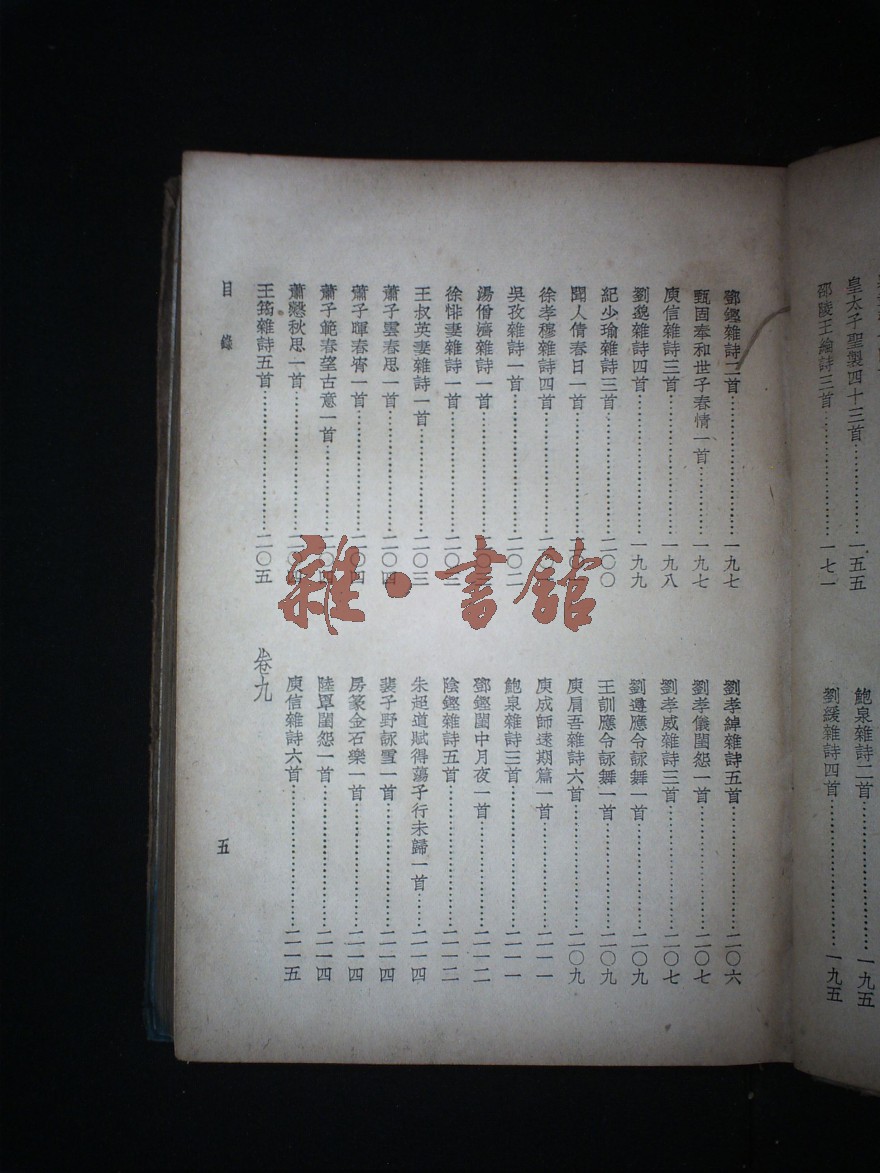 皇太子聖製四十三首……一五五
邵陵王綸詩三首……一七一
鮑泉雜詩二首……一九五
劉緩雜詩四首……一九五
鄧鏗雜詩二首……一九七
甄固奉和世子春情一首……一九七
庾信雜詩三首……一九八
劉邈雜詩四首……一九九
紀少瑜雜詩三首……二〇〇
聞人倩春日一首……二〇
徐孝穆雜詩四首……二
吳孜雜詩一首……二〇二
湯僧濟雜詩一首……二〇
徐悱妻雜詩一首……二〇三
王叔英妻雜詩一首……二〇三
蕭子雲春思一首……二〇四
蕭子暉春宵一首……二〇四
蕭子範春望古意一首……二〇四
蕭愨秋思一首……二〇四
王筠雜詩五首……二〇五
劉孝綽雜詩五首……二〇六
劉孝儀閨怨一首……二〇七
劉孝威雜詩三首……二〇七
劉遵應令詠舞一首……二〇九
王訓應令詠舞一首……二〇九
庾肩吾雜詩六首……二〇九
庾成師遠期篇一首……二一一
鮑泉雜詩三首……二一一
鄧鏗閨中月夜一首……二一二
陰鏗雜詩五首……二一二
朱超道賦得蕩子行未歸一首……二一四
裴子野詠雪一首……二一四
房篆金石樂一首……二一四
陸罩閨怨一首……二一四
庾信雜詩六首……二一五
卷九
目錄
五
雜·書館